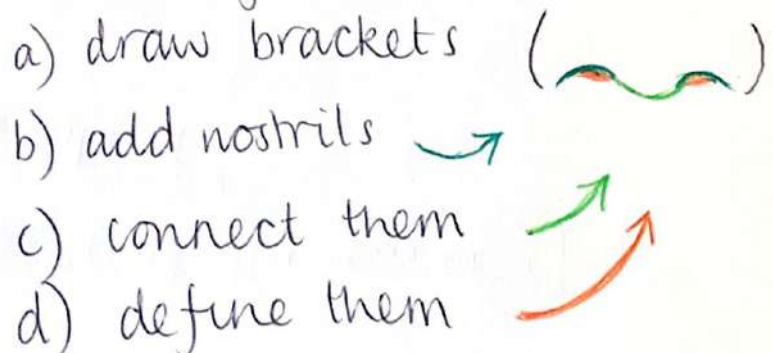 a) draw brackets
b) add nostrils
c) connect them
d) define them